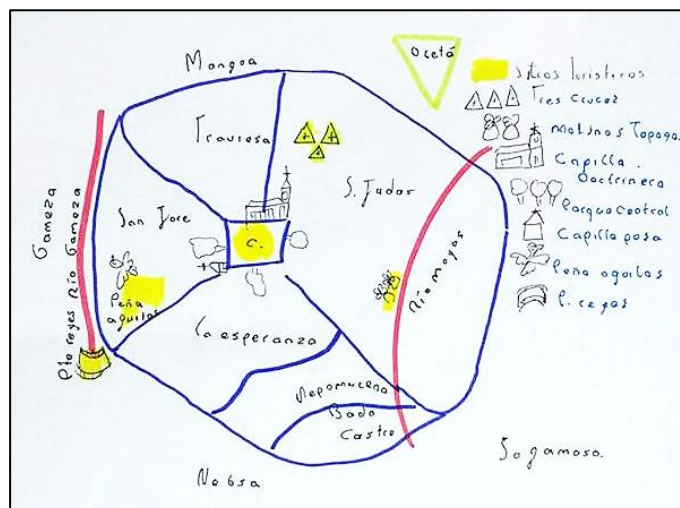 Mongua
Ocetá
Sitios Turisticos
Tres Cruces
Molinos Topaga
Capilla.
Doctrinera
Parque Central
Capilla posa
Peña aguilas
P. reyes
Travesa
S. Judas
San Jore
C.
Gameza
Río Gameza
Pte reyes
Peña
aguilas
Río Moyas
la esperanza
Nepomuceno
Bado
Castro
Nobsa
Sogamoso.